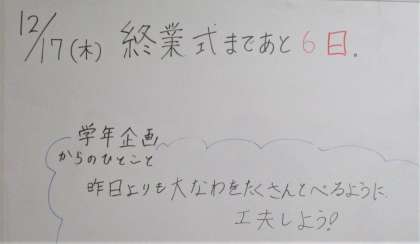 12/17(木) 終業式まであと6日。
学年企画
からのひとこと
昨日よりも大なわをたくさんとべるように
工夫しよう!